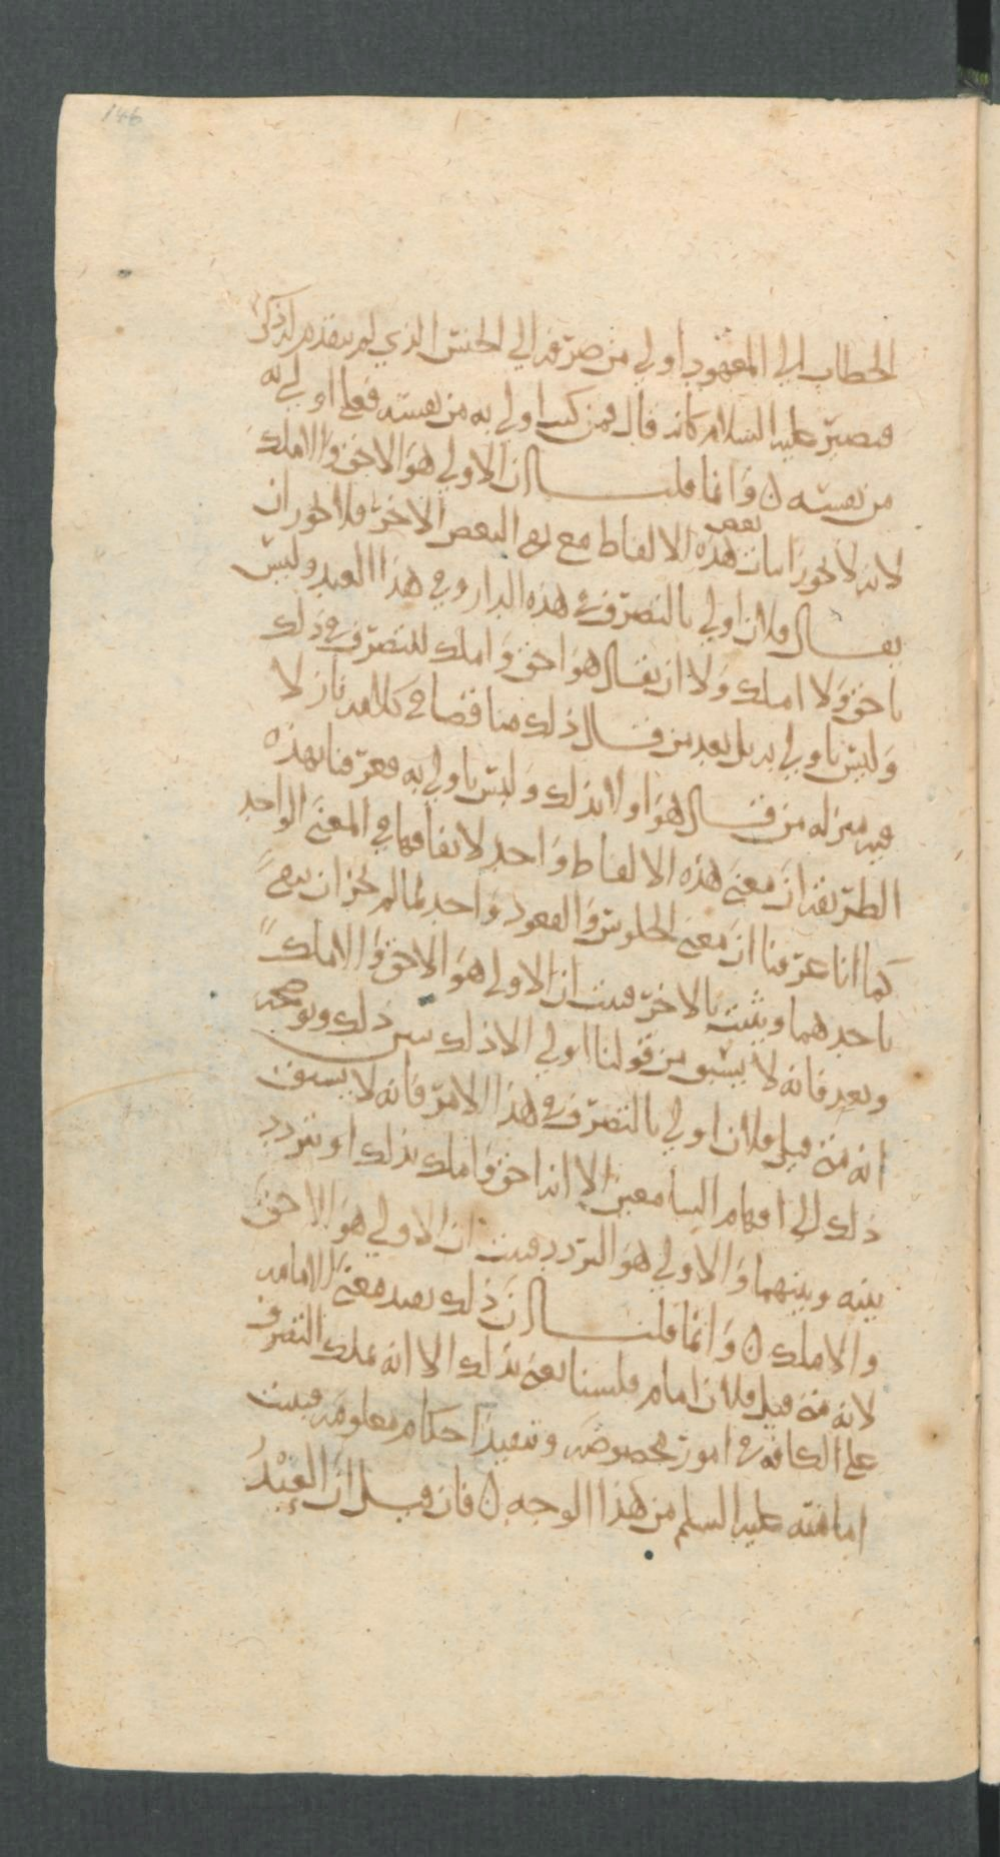 146
الخطاب الى المعهود اولى من صرفه الى الجنس الذي لم يتقدم له ذكر
فيصير عليه السلام كانه قال فمن كنت اولى به من نفسه فعلي اولى به
من نفسه ن وانما قلنا ان الاولى هو الاحق والاملك
لانه لا يجوز اثبات بعض هذه الالفاظ مع نفي البعض الاخر فلا يجوز ان
يقال فلان اولى بالتصرف في هذه الدار وفي هذا العبد وليس
باحق ولا املك ولا ان يقال هو احق واملك للتصرف في ذلك
وليس باولى به بل يعد من قال ذلك مناقضا في كلامه نازلا
فيه منزلة من قال هو اولى بذلك وليس باولى به فعرفنا بهذه
الطريقة ان معنى هذه الالفاظ واحد لاتفاقها في المعنى الواحد
كما انا عرفنا ان معنى الجلوس والقعود واحد لما لم يجز ان ينفى
باحدهما ويثبت بالاخر فثبت ان الاولى هو الاحق والاملك
وبعد فانه لا يسبق من قولنا اولى الا ذلك يبين ذلك ويوضحه
انه متى قيل فلان اولى بالتصرف في هذا الامر فانه لا يسبق
ذلك الى افهام السامعين الا انه احق واملك بذلك او يتردد
بينه وبينهما والاولى هو التردد فثبت ان الاولى هو الاحق
والاملك ن وانما قلنا ان ذلك يفيد معنى الامامه
لانه متى قيل فلان امام فلسنا نعني بذلك الا انه يملك التصرف
على الكافه في امور مخصوصه وتنفيذ احكام معلومه فثبتت
امامته عليه السلم من هذا الوجه ن فان قيل ان العبد